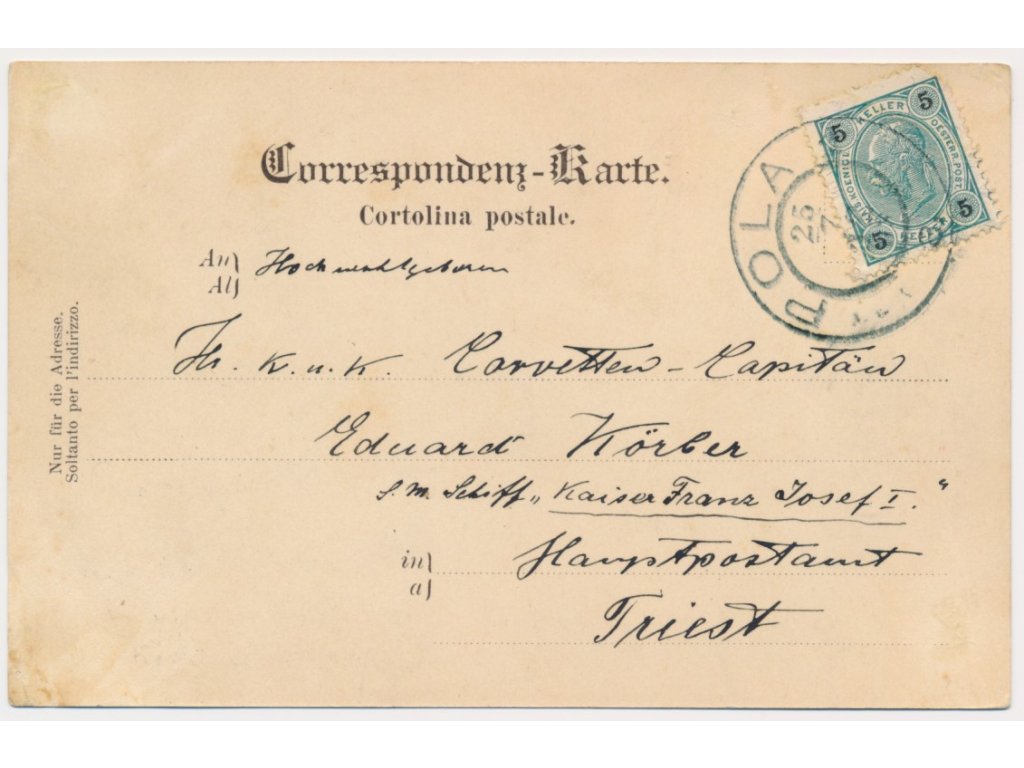 Correspondenz-Karte.
Cortolina postale.
An
Al
Hochwohlgeboren
Hr. K. u. K. Corvetten-Capitän
Eduard Körber
S. M. Schiff „Kaiser Franz Josef I."
in
a
Hauptpostamt
Triest
Nur für die Adresse.
Soltanto per l'indirizzo.
POLA
25
7
5 HELLER 5
KAIS. KOENIGL. OESTERR. POST.
5 HELLER 5